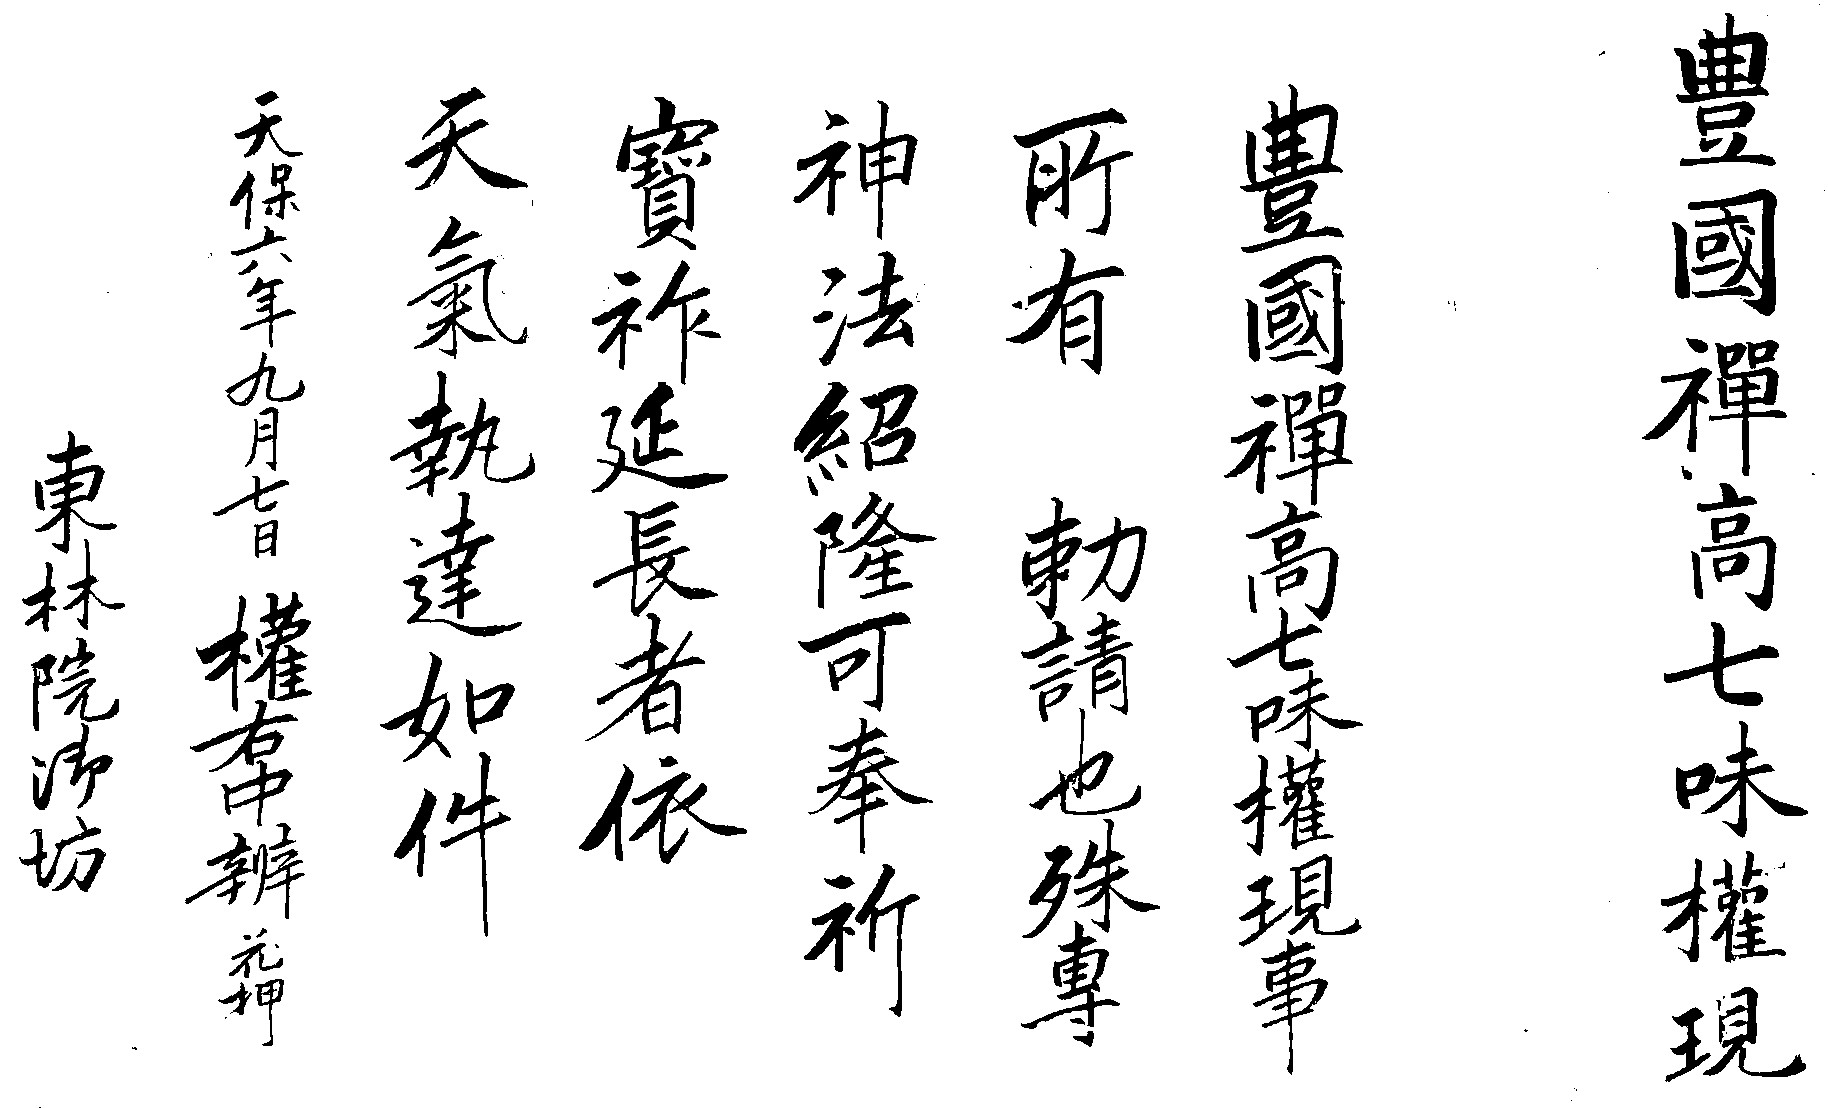 豊國禪高七味權現
豊國禪高七味權現事
所有　勅請也殊專
神法紹隆可奉祈
寳祚延長者依
天氣執達如件
天保六年九月七日　權右中辨　花押
東林院御坊